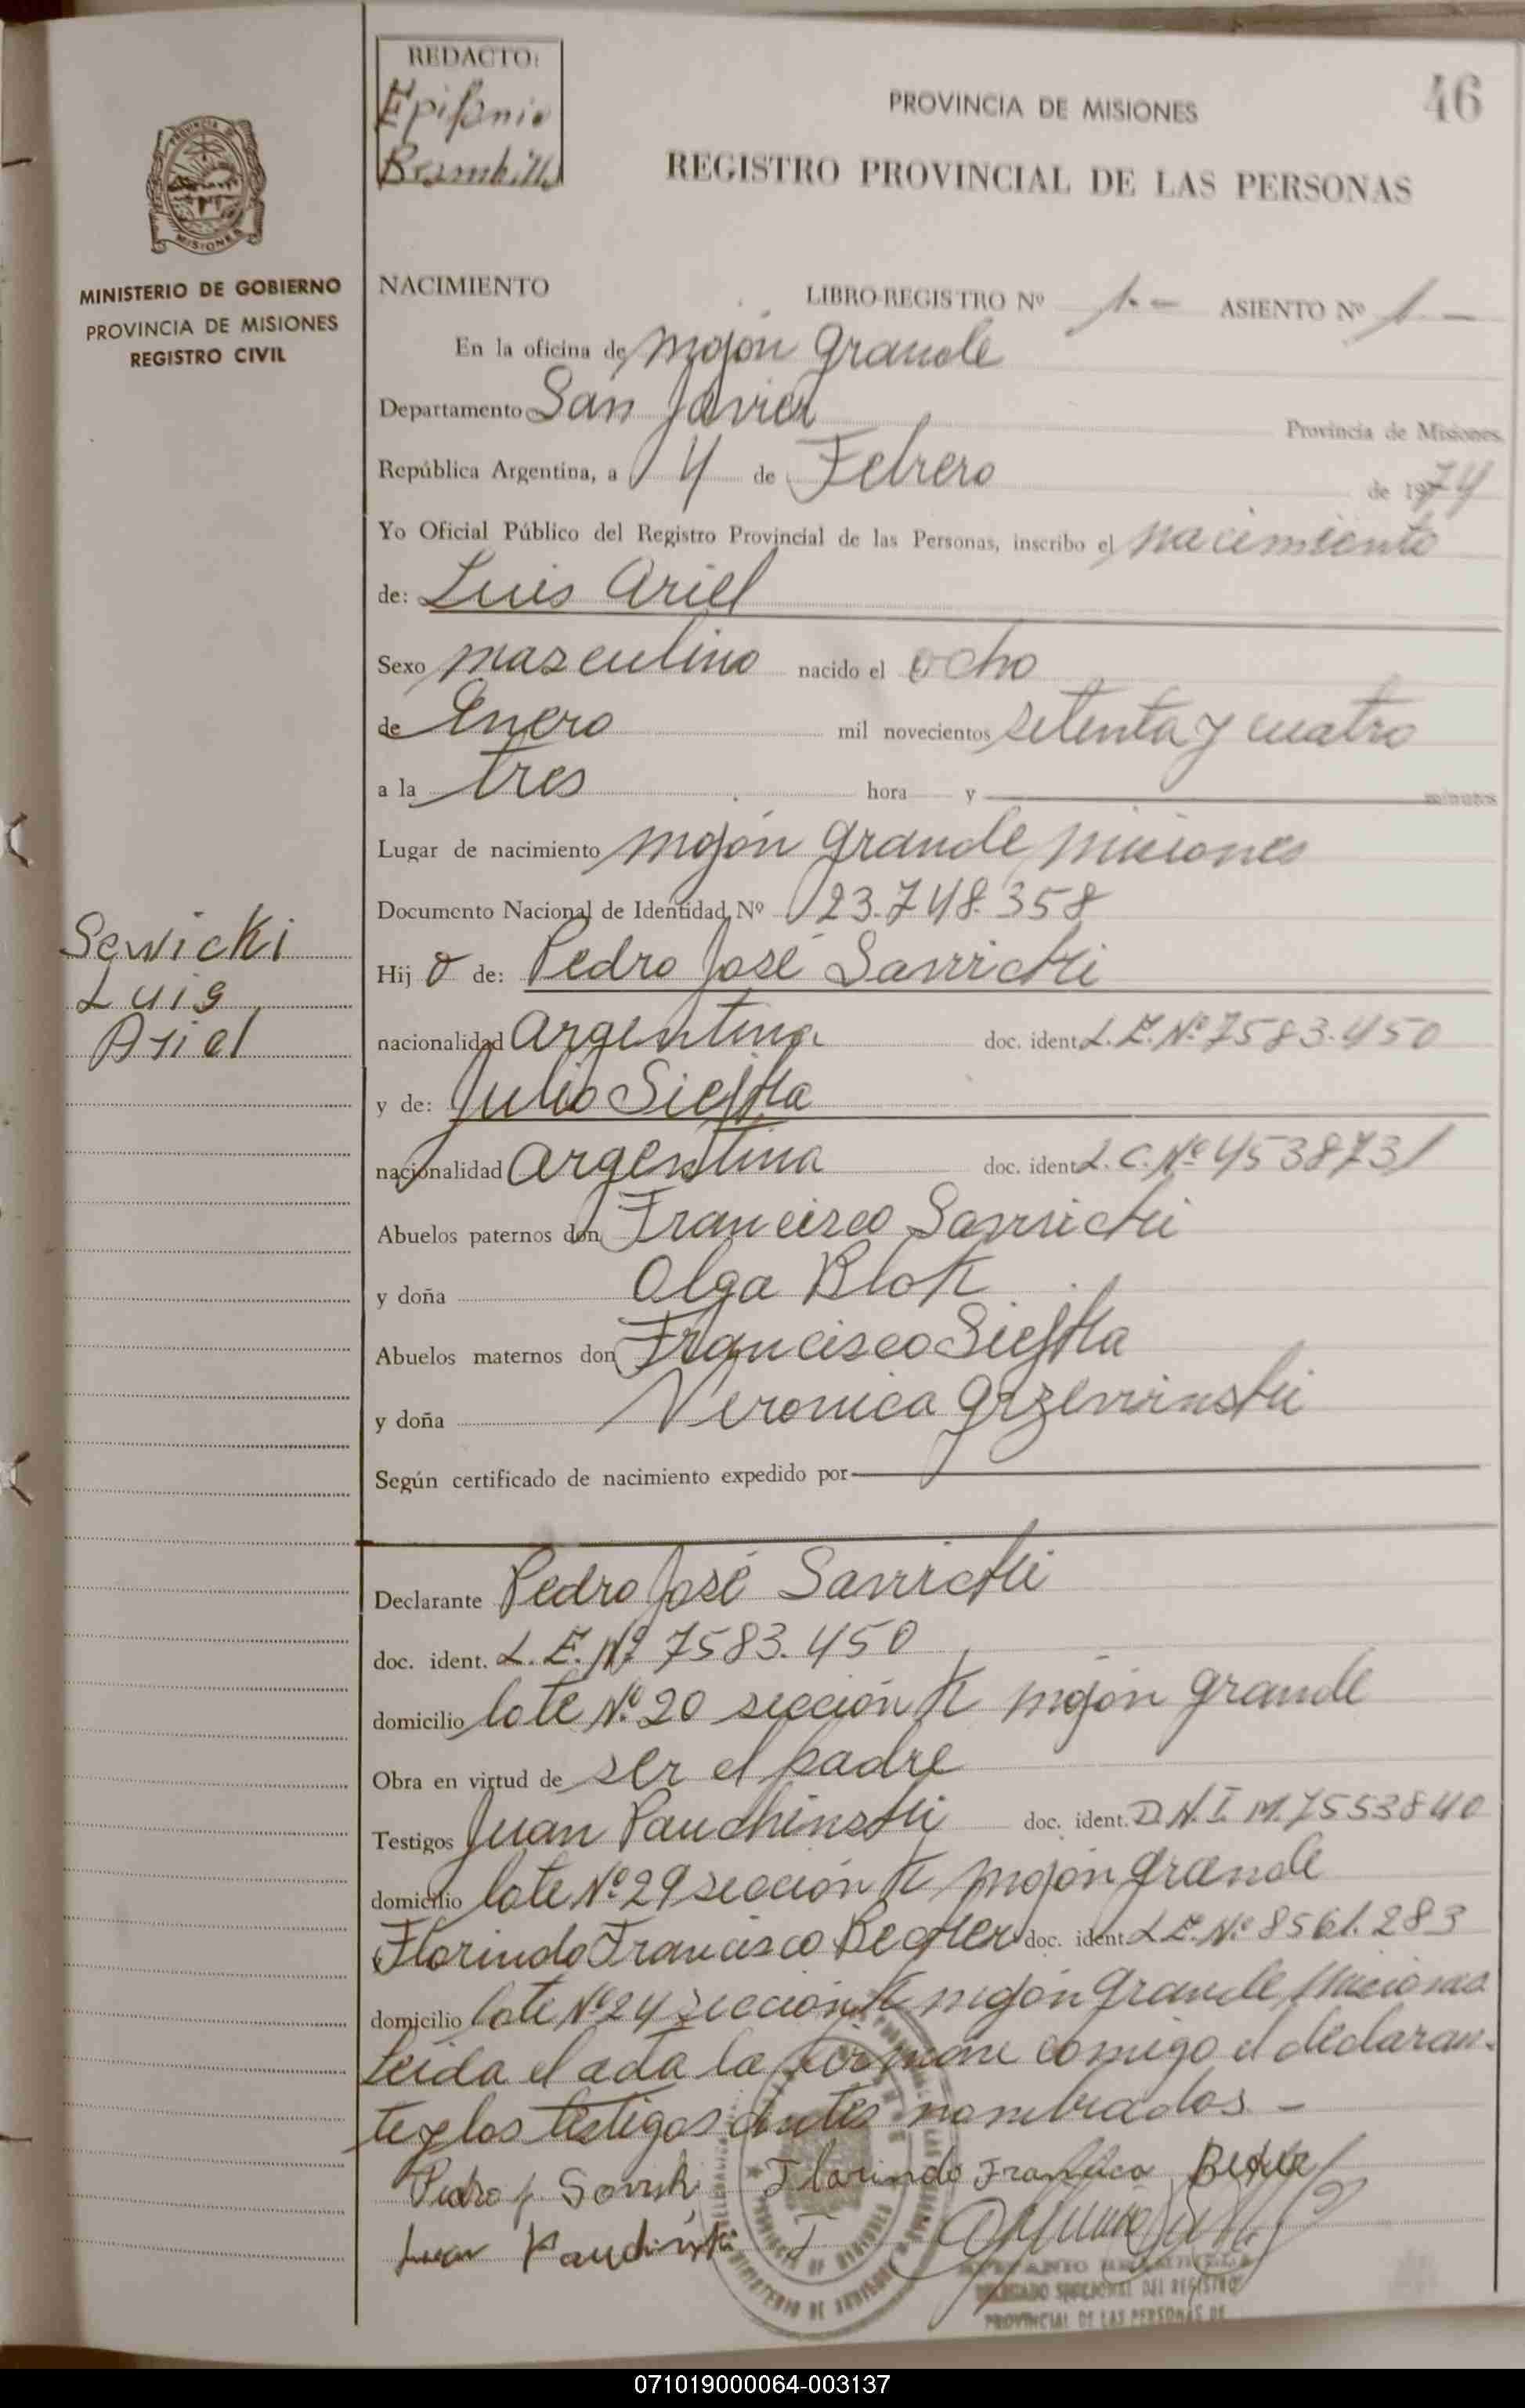 REDACTO:
Epifanio
Brambilla
46
PROVINCIA DE MISIONES
REGISTRO PROVINCIAL DE LAS PERSONAS
PROVINCIA DE
MISIONES
MINISTERIO DE GOBIERNO
PROVINCIA DE MISIONES
REGISTRO CIVIL
NACIMIENTO LIBRO-REGISTRO Nº 1.- ASIENTO Nº 1-
En la oficina de mojón grande
Departamento San Javier Provincia de Misiones,
República Argentina, a 4 de Febrero de 1974
Yo Oficial Público del Registro Provincial de las Personas, inscribo el nacimiento
de: Luis Ariel
Sexo masculino nacido el ocho
de Enero mil novecientos setenta y cuatro
a la tres hora y minutos
Lugar de nacimiento mojón grande misiones
Documento Nacional de Identidad Nº 23.748.358
Sewicki
Luis
Ariel
Hijo de: Pedro José Sawicki
nacionalidad argentina doc. ident. L.E. Nº 7583.450
y de: Julia Sieftka
nacionalidad argentina doc. ident. L.C. Nº 4538731
Abuelos paternos don Francisco Sawicki
y doña Olga Blok
Abuelos maternos don Francisco Sieftka
y doña Veronica grzewinski
Según certificado de nacimiento expedido por
Declarante Pedro José Sawicki
doc. ident. L.E. Nº 7583.450
domicilio lote Nº 20 sección K mojón grande
Obra en virtud de ser el padre
Testigos Juan Pauchinski doc. ident. D.N.I. M. 7553840
domicilio lote Nº 29 sección K mojón grande
Florindo Francisco Becker doc. ident. L.E. Nº 8561.283
domicilio lote Nº 24 sección K mojón grande misiones
leída el acta la firman comigo el declaran-
te y los testigos antes nombrados -
Pedro J. Florindo Francisco Becker
Juan
EPIFANIO BRAMBILLA
DELEGADO SECCIONAL DEL REGISTRO
PROVINCIAL DE LAS PERSONAS DE
071019000064-003137